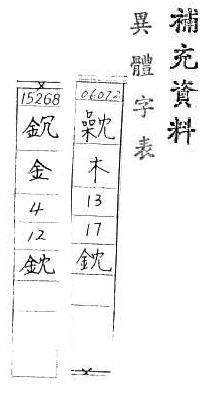 補充資料
異體字表
06072
木
13
17
鈂
15268
金
4
12
鈂